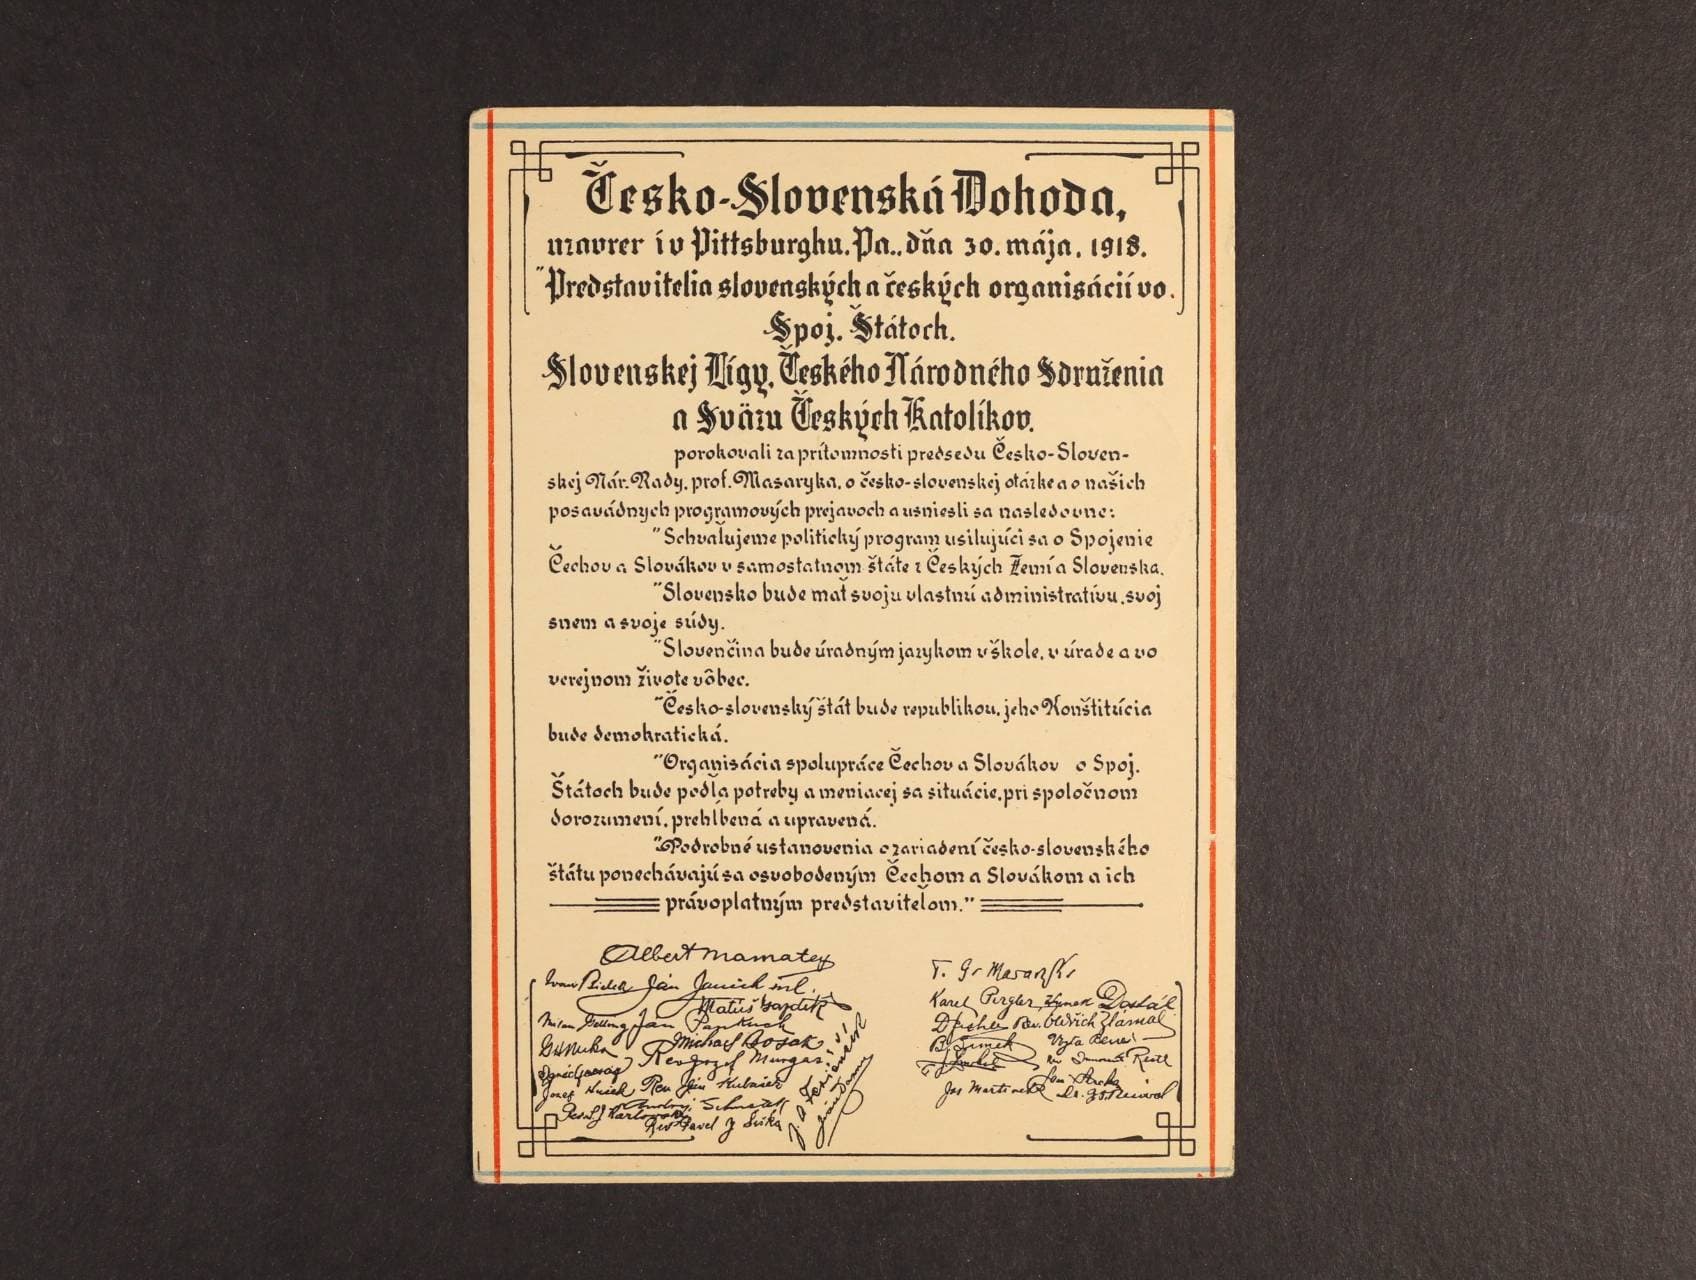 Česko-Slovenská Dohoda,
uzavrer i v Pittsburghu. Pa., dňa 30. mája, 1918.
"Predstavitelia slovenských a českých organisácií vo.
Spoj. Štátoch.
Slovenskej Lígy, Českého Národného Sdruženia
a Sväzu Českých Katolíkov.
porokovali za prítomnosti predsedu Česko-Sloven-
skej Nár. Rady, prof. Masaryka, o česko-slovenskej otázke a o našich
posavádnych programových prejavoch a usniesli sa nasledovne:
"Schvaľujeme politický program usilujúci sa o Spojenie
Čechov a Slovákov v samostatnom štáte z Českých Zemí a Slovenska.
"Slovensko bude mať svoju vlastnú administratívu, svoj
snem a svoje súdy.
"Slovenčina bude úradným jazykom v škole, v úrade a vo
verejnom živote vôbec.
"Česko-slovenský štát bude republikou, jeho Konštitúcia
bude demokratická.
"Organisácia spolupráce Čechov a Slovákov o Spoj.
Štátoch bude podľa potreby a meniacej sa situácie, pri spoločnom
dorozumení, prehĺbená a upravená.
"Podrobné ustanovenia o zariadení česko-slovenského
štátu ponechávajú sa osvobodeným Čechom a Slovákom a ich
právoplatným predstaviteľom."
Albert Mamatey
Ivan Bielek Ján Janček ml.
Matúš Gazdík
Milan Getting Ján Pankuch
Michael Bosak
Rev Jozef Murgaš
Jozef Hušek Rev Ján Kubašek
Andrej Schustek
Rev Pavel J Šiška
T. G. Masaryk
Karel Pergler, Hynek Dostál
Rev. Oldřich Zlámal
B. Šimek Vojta Beneš
Jos Martinek